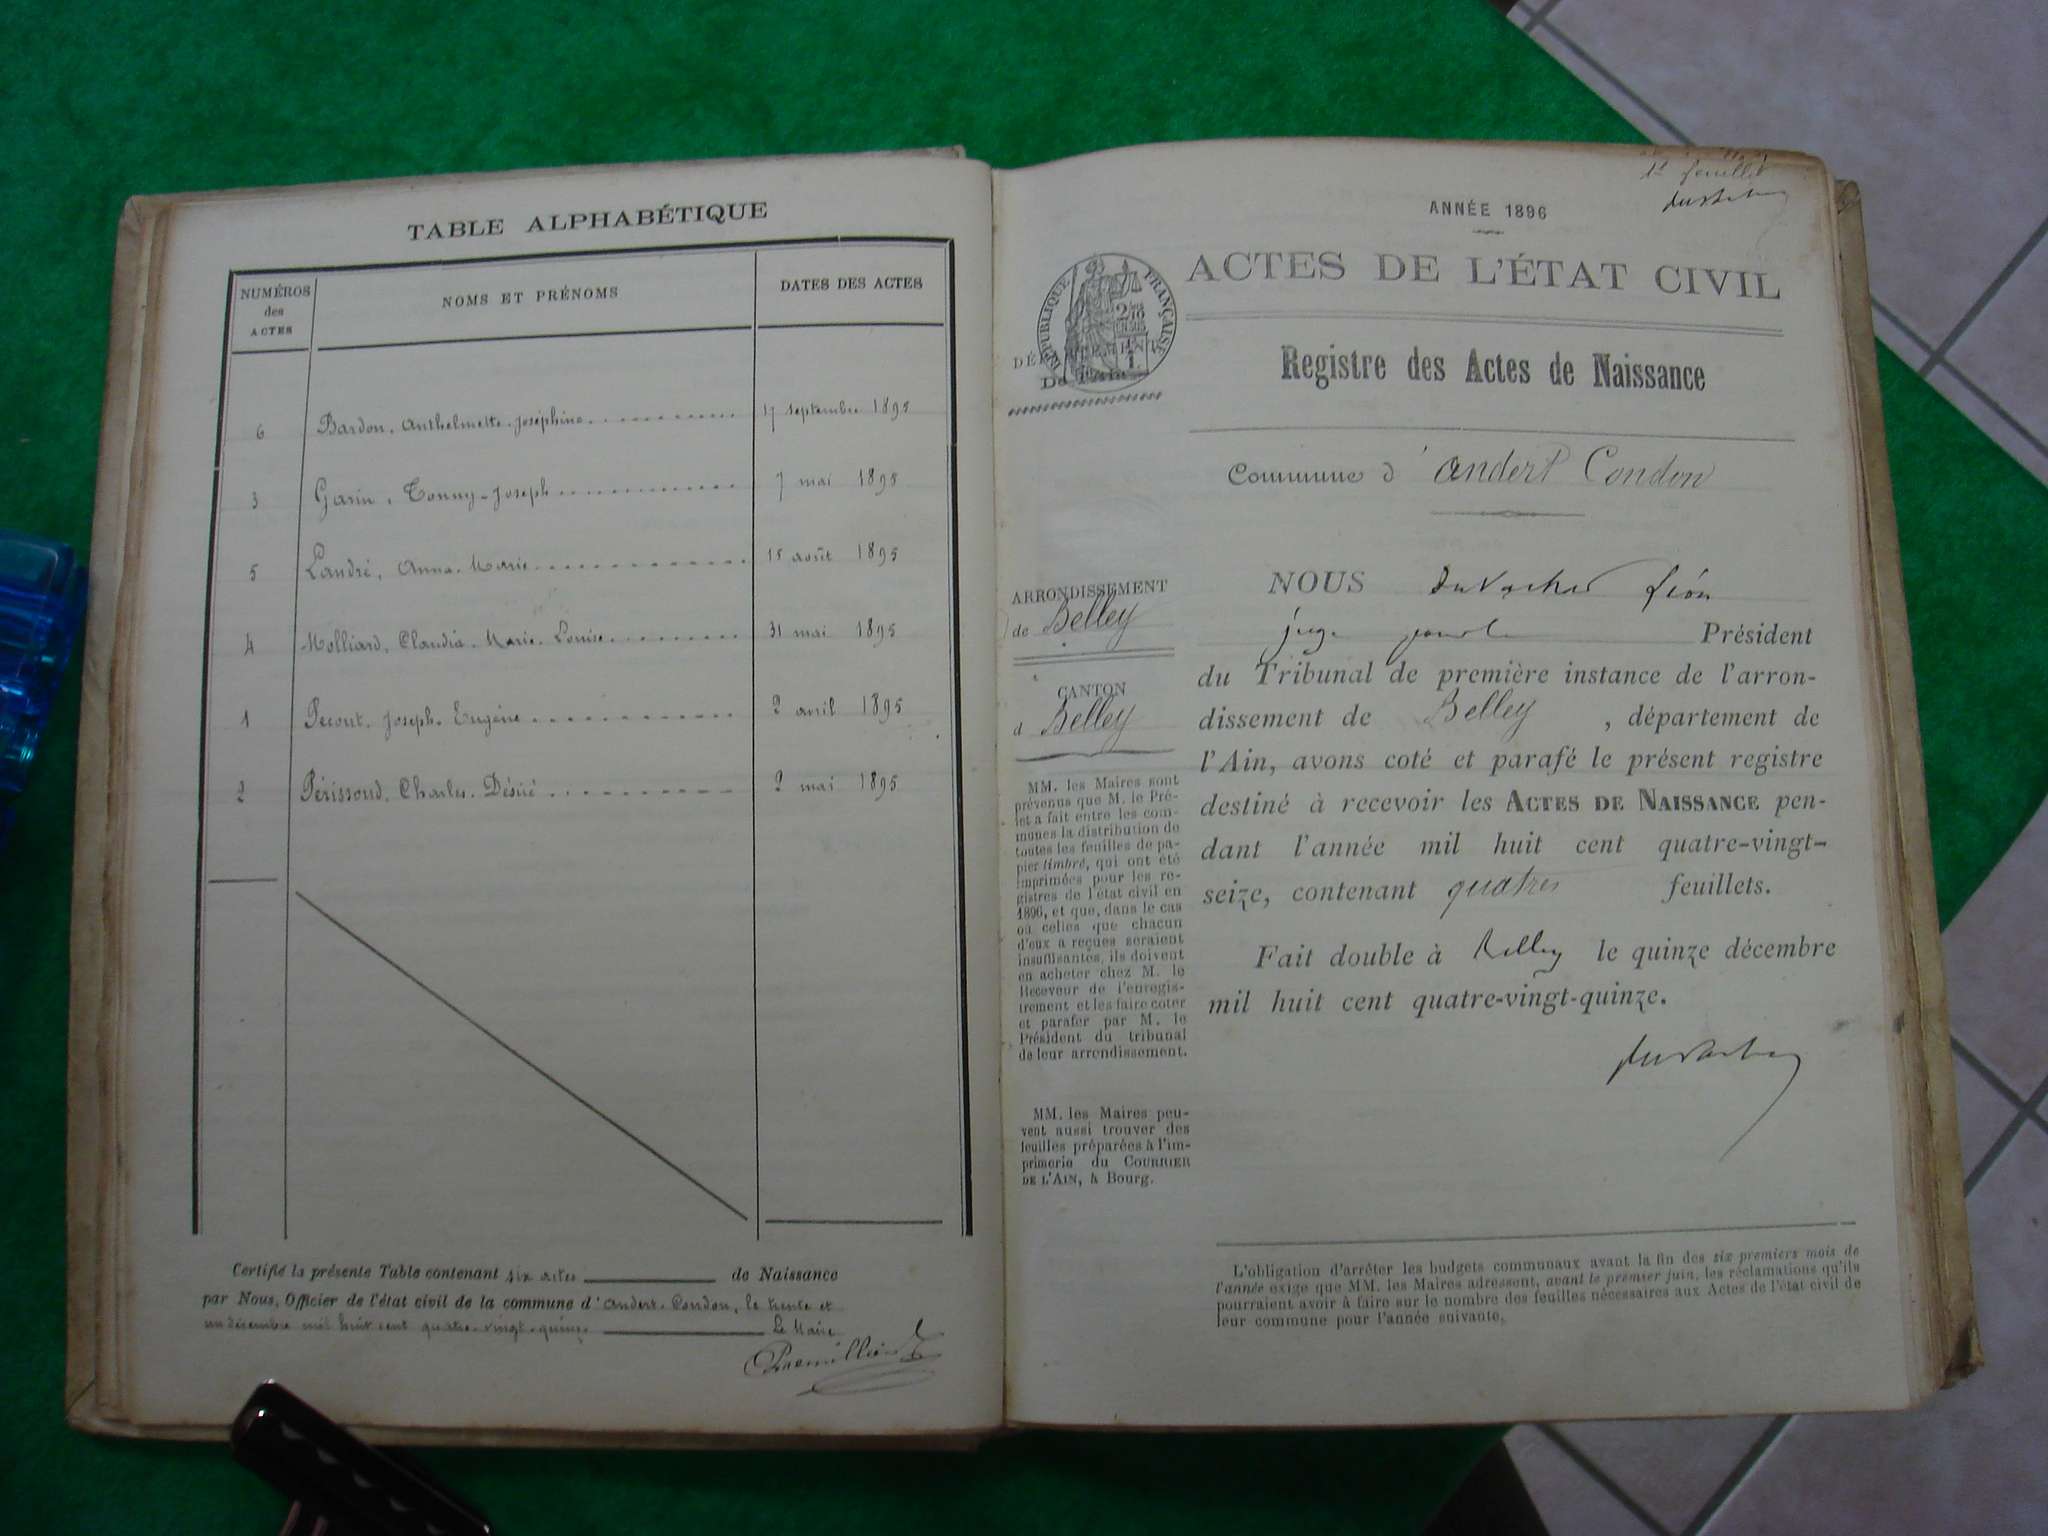 TABLE ALPHABÉTIQUE
NUMÉROS
des
ACTES
NOMS ET PRÉNOMS
DATES DES ACTES
6 Bardon, Anthelmette-Joséphine 17 septembre 1895
3 Garin, Tonny-Joseph 7 mai 1895
5 Landré, Anna-Marie 15 août 1895
4 Molliard, Claudia-Marie-Louise 31 mai 1895
1 Pecout, Joseph-Eugène 2 avril 1895
2 Périssoud, Charles-Désiré 2 mai 1895
Certifié la présente Table contenant six actes de Naissance
par Nous, Officier de l'état civil de la commune d'Andert-Condon, le trente et
un décembre mil huit cent quatre-vingt-quinze Le Maire
1er feuillet
ANNÉE 1896
ACTES DE L'ÉTAT CIVIL
RÉPUBLIQUE FRANÇAISE
DÉPARTEMENT
De l'Ain
Registre des Actes de Naissance
Commune d'Andert Condon
ARRONDISSEMENT
de Belley
CANTON
d Belley
MM. les Maires sont
prévenus que M. le Pré-
fet a fait entre les com-
munes la distribution de
toutes les feuilles de pa-
pier timbré, qui ont été
imprimées pour les re-
gistres de l'état civil en
1896, et que, dans le cas
où celles que chacun
d'eux a reçues seraient
insuffisantes, ils doivent
en acheter chez M. le
Receveur de l'enregis-
trement et les faire coter
et parafer par M. le
Président du tribunal
de leur arrondissement.
MM. les Maires peu-
vent aussi trouver des
feuilles préparées à l'im-
primerie du COURRIER
DE L'AIN, à Bourg.
NOUS Léon
juge Président
du Tribunal de première instance de l'arron-
dissement de Belley, département de
l'Ain, avons coté et parafé le présent registre
destiné à recevoir les ACTES DE NAISSANCE pen-
dant l'année mil huit cent quatre-vingt-
seize, contenant quatre feuillets.
Fait double à Belley le quinze décembre
mil huit cent quatre-vingt-quinze.
L'obligation d'arrêter les budgets communaux avant la fin des six premiers mois de
l'année exige que MM. les Maires adressent, avant le premier juin, les réclamations qu'ils
pourraient avoir à faire sur le nombre des feuilles nécessaires aux Actes de l'état civil de
leur commune pour l'année suivante.